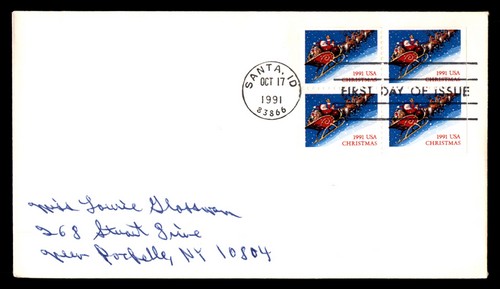 SANTA, ID
OCT 17
1991
83866
FIRST DAY OF ISSUE
1991 USA
CHRISTMAS
1991 USA
CHRISTMAS
1991 USA
CHRISTMAS
1991 USA
CHRISTMAS
Miss Laurie Glassman
268 Stuart Drive
New Rochelle, NY 10804